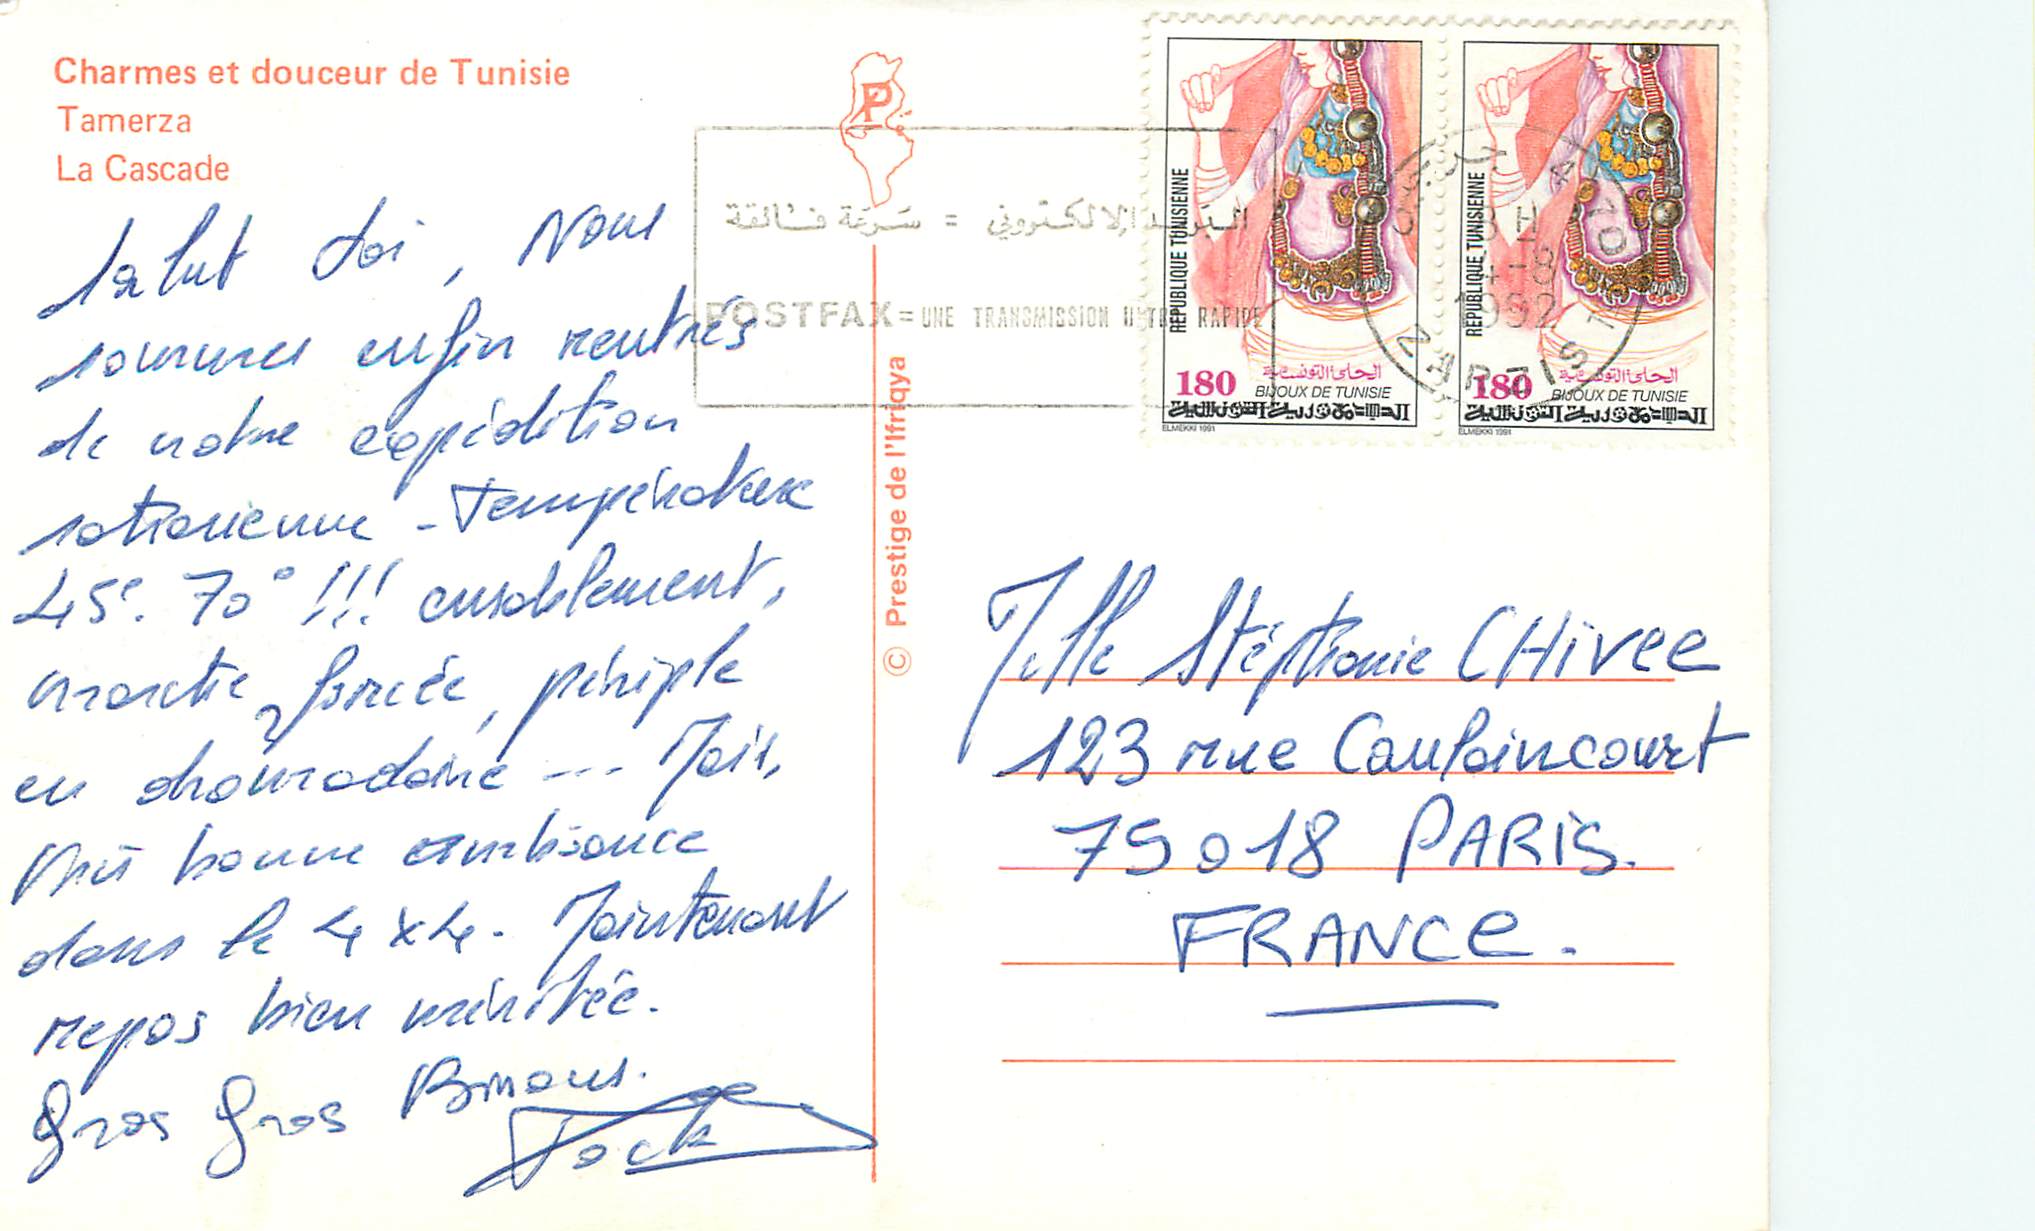 Charmes et douceur de Tunisie
Tamerza
La Cascade
Salut toi, Nous
sommes enfin rentrés
de notre expédition
saharienne - Température
45°. 70° !!! ensablement,
marche forcée, périple
en dromadaire --- Mais,
très bonne ambiance
dans le 4x4. Maintenant
repos bien méritée.
Gros Gros Bisous.
© Prestige de l'Ifriqya
P
البريد الالكتروني = سرعة فائقة
POSTFAX = UNE TRANSMISSION ULTRA RAPIDE
REPUBLIQUE TUNISIENNE
180
الحلي التونسية
BIJOUX DE TUNISIE
الجمهورية التونسية
ELMEKKI 1991
REPUBLIQUE TUNISIENNE
180
الحلي التونسية
BIJOUX DE TUNISIE
الجمهورية التونسية
ELMEKKI 1991
1992
Melle Stéphanie CHIVEE
123 rue Caulaincourt
75018 PARIS.
FRANCE.